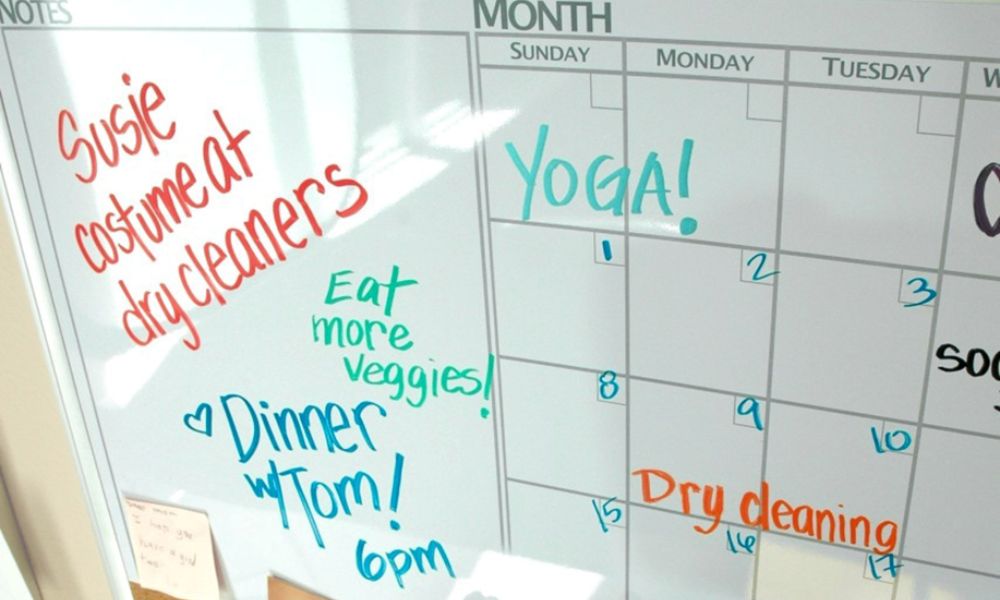 NOTES
MONTH
SUNDAY MONDAY TUESDAY W
Susie
costume at
dry cleaners
Eat
more
veggies!
♡ Dinner
w/Tom!
6pm
YOGA!
1 2 3
SOC
8 9 10
Dry cleaning
15 16 17
I hope you
have a good